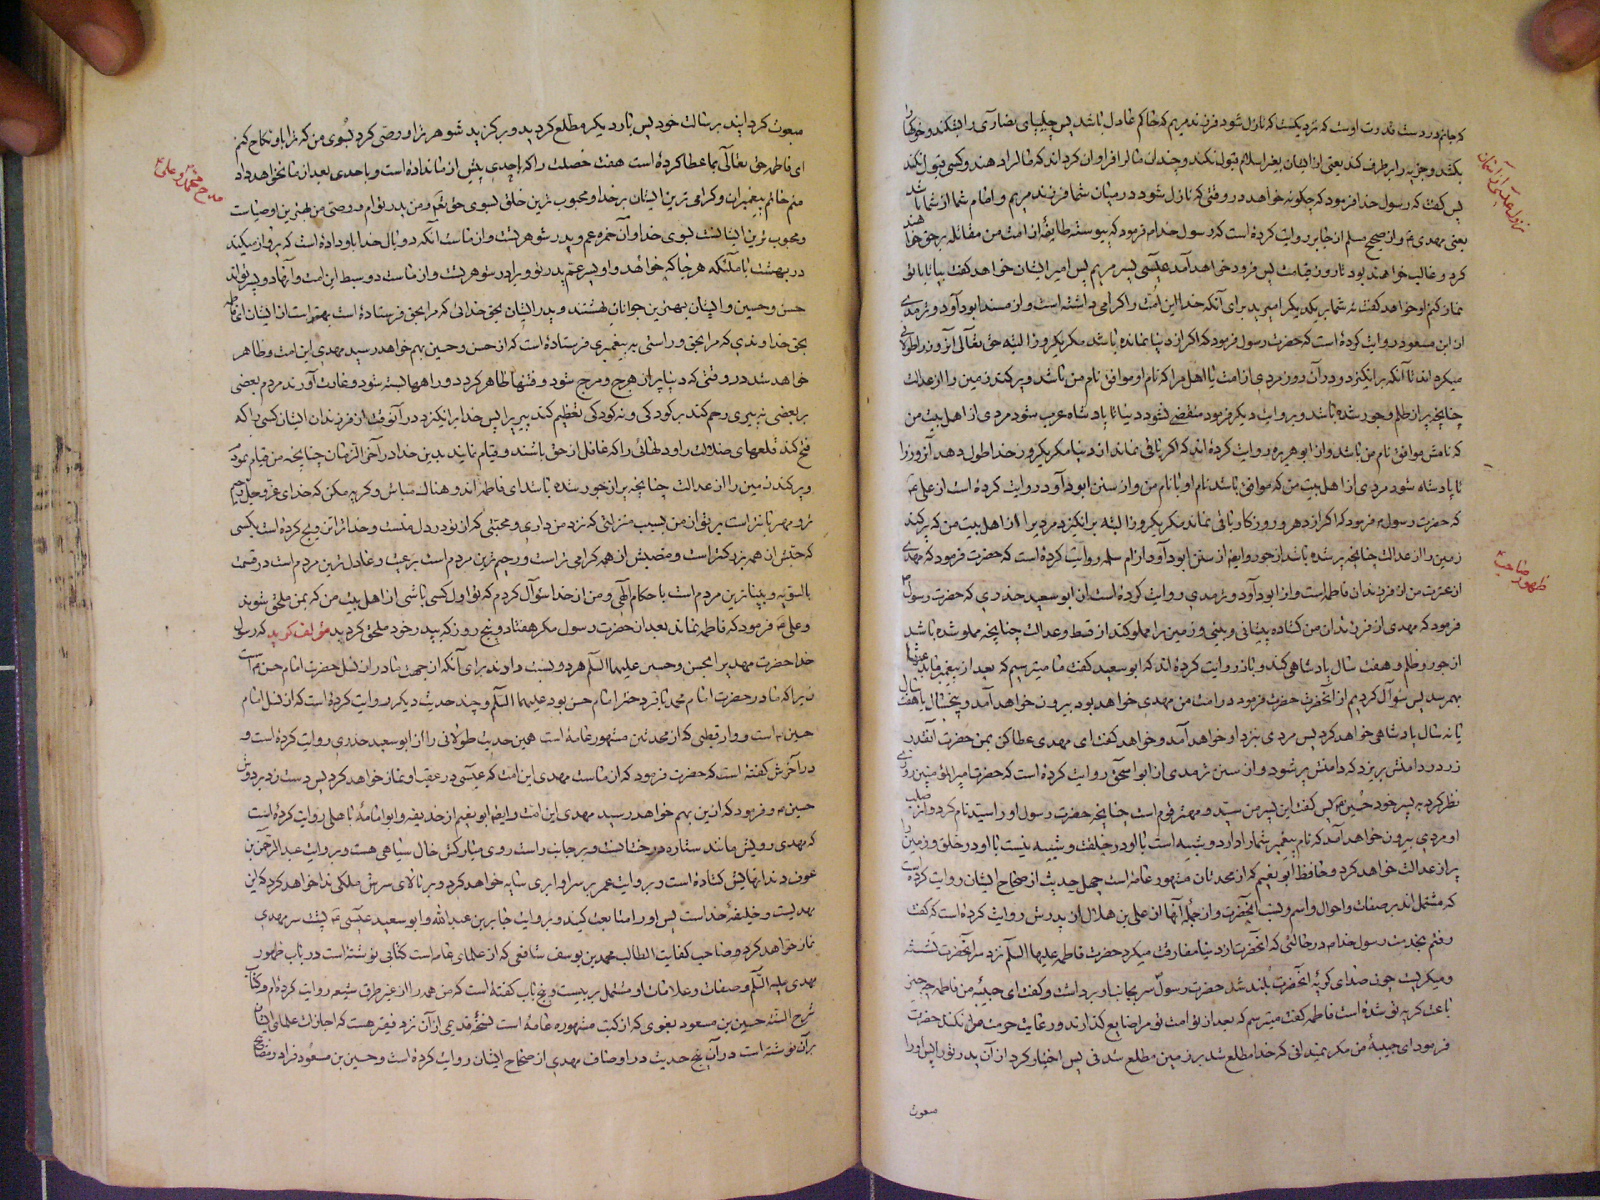 که جانم در دست قدرت اوست که نزدیکست که نازل شود فرزند مریم که حاکم عادل باشد پس چلیپای نصاری را بشکند و خوکها را
بکشد و جزیه را برطرف کند یعنی از ایشان بغیر اسلام قبول نکند و چندان مال را فراوان گرداند که مال را دهند و کسی قبول نکند
پس گفت که رسول خدا فرمود که چگونه خواهد در وقتی که نازل شود در میان شما فرزند مریم و امام شما از شما باشد
یعنی مهدی و از صحیح مسلم از جابر روایت کرده است که رسول خدا فرمود که پیوسته طایفه از امت من مقاتله بر حق خواهند
کرد و غالب خواهند بود تا روز قیامت پس فرود خواهد آمد عیسی پسر مریم پس امیر ایشان خواهد گفت بیا تا با تو
نماز کنم او خواهد گفت نه شما بر یکدیگر امیرید برای آنکه خدا این امت را گرامی داشته است و از مسند ابو داود و ترمدی
از ابن مسعود روایت کرده است که حضرت رسول فرمود که اگر از دنیا نمانده باشد مگر یکروز البته حق تعالی آنروز را طولانی
میگرداند تا آنکه برانگیزد در آن روز مردی از امت یا اهل مرا که نام او موافق نام من باشد و پر کند زمین را از عدالت
چنانچه پر از ظلم و جور شده باشد و بروایت دیگر فرمود منقضی نشود دنیا تا پادشاه عرب شود مردی از اهل بیت من
که نامش موافق نام من باشد و از ابو هریره روایت کرده اند که اگر باقی نماند از دنیا مگر یکروز خدا طول دهد آنروز را
تا پادشاه شود مردی از اهل بیت من که موافق باشد نام او با نام من و از سنن ابو داود روایت کرده است از علی ع
که حضرت رسول فرمود که اگر از دهر و روزگار باقی نماند مگر یکروز البته برانگیزد مردیرا از اهل بیت من که پر کند
زمین را از عدالت چنانچه پر شده باشد از جور و ایضا از سنن ابو داود از ام سلمه روایت کرده است که حضرت فرمود که مهدی
از عترت من از فرزندان فاطمه است و از ابو داود و ترمدی روایت کرده است از ابو سعید خدری که حضرت رسول
فرمود که مهدی از فرزندان من گشاده پیشانی و بینی و زمین را مملو کند از قسط و عدالت چنانچه مملو شده باشد
از جور و ظلم و هفت سال پادشاهی کند و باز روایت کرده اند که ابو سعید گفت ما میترسیم که بعد از پیغمبر
بهم رسد پس سؤال کردیم از آنحضرت حضرت فرمود در امت من مهدی خواهد بود بیرون خواهد آمد و پنجسال یا هفت سال
یا نه سال پادشاهی خواهد کرد پس مردی بنزد او خواهد آمد و خواهد گفت ای مهدی عطا کن بمن حضرت آنقدر
زر در دامنش بریزد که دامنش پر شود و از سنن ترمدی از ابو اسحق روایت کرده است که حضرت امیر المؤمنین روزی
نظر کرد به پسر خود حسین پس گفت این پسر من سید و مهتر قوم است چنانچه حضرت رسول او را سید نام کرد و از صلب
او مردی بیرون خواهد آمد که نام پیغمبر شما را دارد و شبیه است با او در خلقت و شبیه نیست با او در خلق و زمین را
پر از عدالت خواهد کرد و حافظ ابو نعیم که از محدثان مشهور عامه است چهل حدیث از صحاح ایشان روایت کرده است
که مشتمل اند بر صفات و احوال و اسم و نسب آنحضرت و از جمله آنها از علی بن هلال از پدرش روایت کرده است که گفت
رفتم بخدمت رسول خدا در حالتی که آنحضرت از دنیا مفارقت میکرد حضرت فاطمه علیها السلم نزد سر آنحضرت نشسته
و میگریست چون صدای گریه آنحضرت بلند شد حضرت رسول سر بجانب او برداشت و گفت ای حبیبه من فاطمه چه چیز
باعث گریه تو شده است فاطمه گفت میترسم که بعد از تو امت تو مرا ضایع گذارند و رعایت حرمت من نکنند حضرت
فرمود ای حبیبه من مگر نمیدانی که خدا مطلع شد بر زمین مطلع شدنی پس اختیار کرد از آن پدر تو را پس او را
مبعوث
نزول عیسی از آسمان
ظهور صاحب
مبعوث گردانید برسالت خود پس بار دیگر مطلع گردید و برگزید شوهر ترا و وحی کرد بسوی من که ترا باو نکاح کنم
ای فاطمه حق تعالی بما عطا کرده است هفت خصلت را که باحدی پیش از ما نداده است و باحدی بعد از ما نخواهد داد
منم خاتم پیغمبران و گرامی ترین ایشان بر خدا و محبوب ترین خلق بسوی حق تعم و من پدر توام و وصی من بهترین اوصیاست
و محبوب ترین ایشانست بسوی خدا و آن حمزه عم پدر و شوهر تست و از ماست آنکه دو بال خدا باو داده است که پرواز میکند
در بهشت با ملائکه هر جا که خواهد و او پسر عم پدر تو و برادر شوهر تست و از ماست دو سبط این امت و آنها دو پسر تواند
حسن و حسین و ایشان بهترین جوانان بهشتند و پدر ایشان بحق خدائی که مرا بحق فرستاده است بهتر است از ایشان ای فاطمه
بحق خداوندی که مرا بحق و راستی به پیغمبری فرستاده است که از حسن و حسین بهم خواهد رسید مهدی این امت و ظاهر
خواهد شد در وقتی که دنیا پر از هرج و مرج شود و فتنها ظاهر گردد و راهها بسته شود و غارت آورند مردم بعضی
بر بعضی نه پیری رحم کند بر کودکی و نه کودکی تعظیم کند پیریرا پس خدا برانگیزد در آنوقت از فرزندان ایشان کسی را که
فتح کند قلعهای ضلالت را و دلهائی را که غافل از حق باشند و قیام نماید بدین خدا در آخر الزمان چنانچه من قیام نمودم
و پر کند زمین را از عدالت چنانچه پر از جور شده باشد ای فاطمه اندوهناک مباش و گریه مکن که خدای عز و جل رحیم
تر و مهربانتر است بر تو از من بسبب منزلتی که نزد من داری و محبتی که از تو در دل منست و خدا ترا تزویج کرده است بکسی
که حسبش از همه بزرگتر است و منصبش از همه گرامی تر است و رحیم ترین مردم است برعیت و عادل ترین مردم است در قسمت
بالسویه و بیناترین مردم است باحکام الهی و من از خدا سؤال کردم که تو اول کسی باشی از اهل بیت من که بمن ملحق شوند
و علی ع فرمود که فاطمه نماند بعد از حضرت رسول مگر هفتاد و پنج روز که بپدر خود ملحق گردید مؤلف گوید که رسول
خدا حضرت مهدیرا بحسن و حسین علیهما السلم هر دو نسبت داد برای آنکه از جهت مادر از نسل حضرت امام حسن است
زیرا که مادر حضرت امام محمد باقر دختر امام حسن بود علیهما السلم و چند حدیث دیگر روایت کرده است که از نسل امام
حسین است و دار قطنی که از محدثین مشهور عامه است همین حدیث طولانی را از ابو سعید خدری روایت کرده است و
در آخرش گفته است که حضرت فرمود که از ماست مهدی این امت که عیسی در عقب او نماز خواهد کرد پس دست زد بر دوش
حسین و فرمود که ازین بهم خواهد رسید مهدی این امت و ایضا ابو نعیم از حذیفه و ابو امامه باهلی روایت کرده است
که مهدی رویش مانند ستاره درخشانست و بر جانب راست روی مبارکش خال سیاهی هست و بروایت عبد الرحمن بن
عوف دندانهایش گشاده است و بروایت عمر بر سر او ابری سایه خواهد کرد و بر بالای سرش ملکی ندا خواهد کرد که این
مهدیست و خلیفه خداست پس او را متابعت کنید و بروایت جابر بن عبد الله و ابو سعید عیسی ع پشت سر مهدی
نماز خواهد کرد و صاحب کفایت الطالب محمد بن یوسف شافعی که از علمای عامه است کتابی نوشته است در باب ظهور
مهدی علیه السلم و صفات و علامات او مشتمل بر بیست و پنج باب گفته است که من همه را از غیر طرق شیعه روایت کرده ام و کتاب
شرح السنه حسین بن مسعود بغوی که از کتب مشهوره عامه است نسخه قدیمی از آن نزد فقیر هست که اجازات علمای ایشان
بر آن نوشته است در آن پنج حدیث در اوصاف مهدی از صحاح ایشان روایت کرده است و حسین بن مسعود فراء در مصابیح
مدح محمد و علی